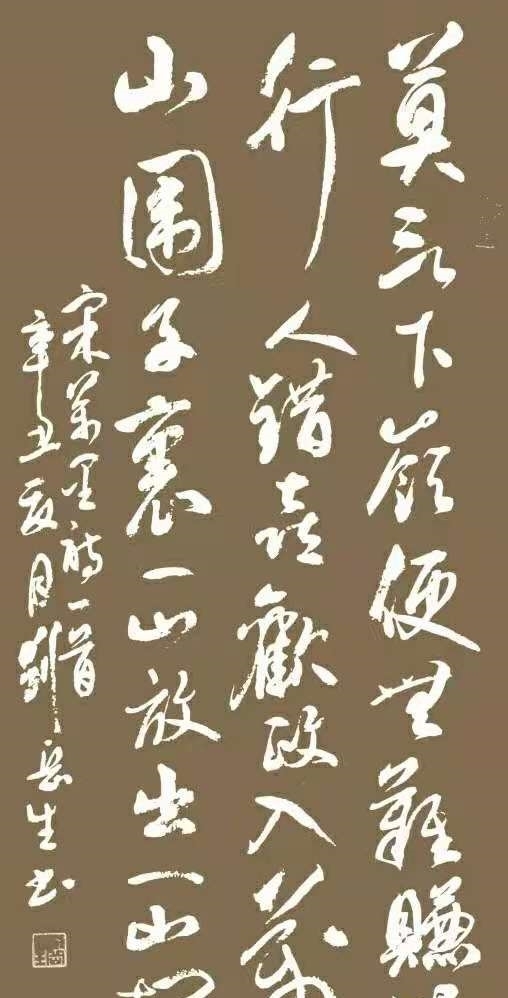 莫言下嶺便無難賺
行人錯喜歡政入萬
山圍子裏一山放出一山
宋萬里詩一首
辛丑夏月劉岳生書